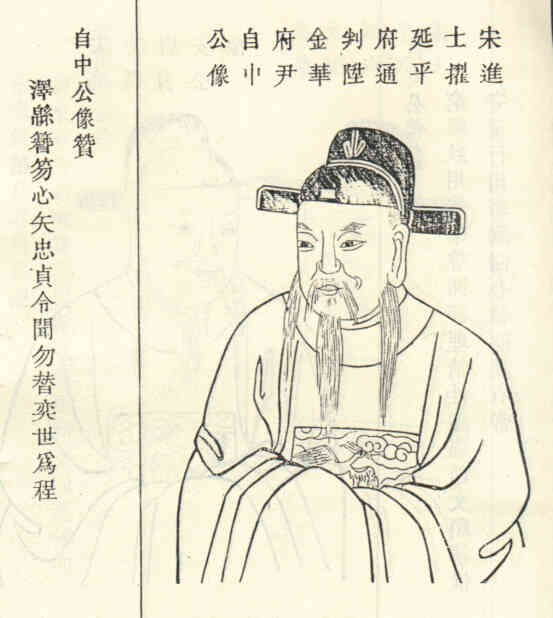 宋進
士擢
延平
府通
判陞
金華
府尹
自中
公像
自中公像贊
澤緜簪笏心矢忠貞令聞勿替奕世爲程